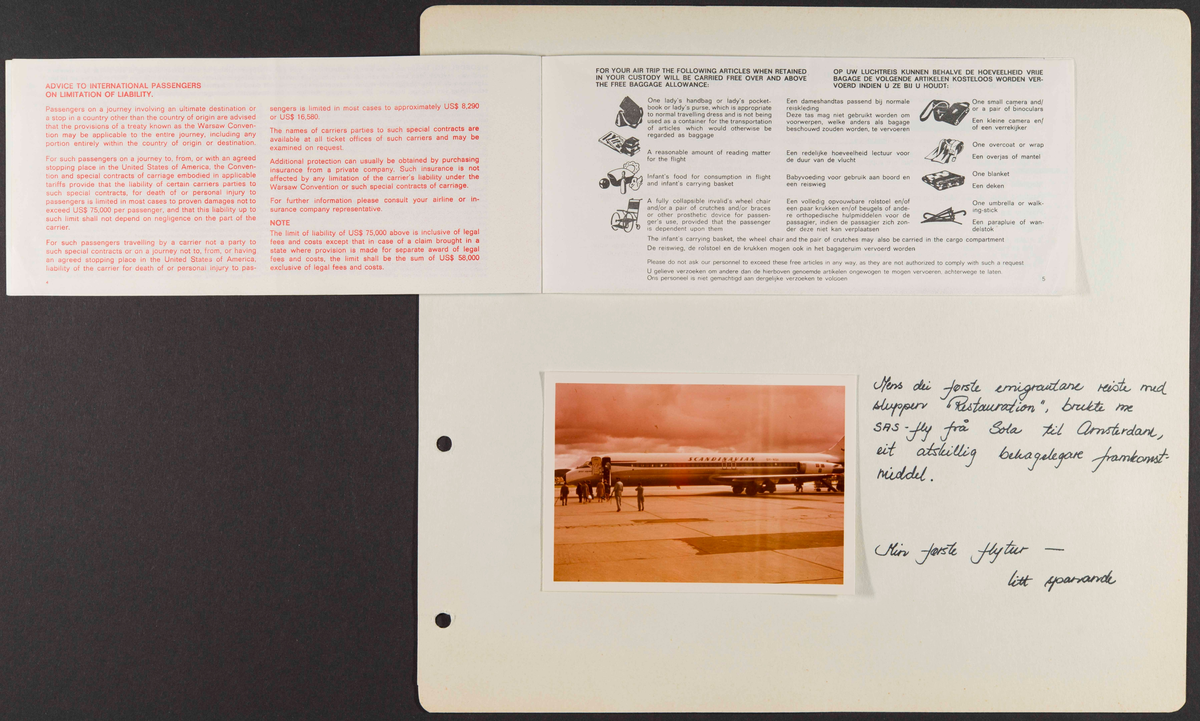 ADVICE TO INTERNATIONAL PASSENGERS
ON LIMITATION OF LIABILITY.
Passengers on a journey involving an ultimate destination or
a stop in a country other than the country of origin are advised
that the provisions of a treaty known as the Warsaw Conven-
tion may be applicable to the entire journey, including any
portion entirely within the country of origin or destination.
For such passengers on a journey to, from, or with an agreed
stopping place in the United States of America, the Conven-
tion and special contracts of carriage embodied in applicable
tariffs provide that the liability of certain carriers parties to
such special contracts, for death of or personal injury to
passengers is limited in most cases to proven damages not to
exceed US$ 75,000 per passenger, and that this liability up to
such limit shall not depend on negligence on the part of the
carrier.
For such passengers travelling by a carrier not a party to
such special contracts or on a journey not to, from, or having
an agreed stopping place in the United States of America,
liability of the carrier for death of or personal injury to pas-
sengers is limited in most cases to approximately US$ 8,290
or US$ 16,580.
The names of carriers parties to such special contracts are
available at all ticket offices of such carriers and may be
examined on request.
Additional protection can usually be obtained by purchasing
insurance from a private company. Such insurance is not
affected by any limitation of the carrier's liability under the
Warsaw Convention or such special contracts of carriage.
For further information please consult your airline or in-
surance company representative.
NOTE
The limit of liability of US$ 75,000 above is inclusive of legal
fees and costs except that in case of a claim brought in a
state where provision is made for separate award of legal
fees and costs, the limit shall be the sum of US$ 58,000
exclusive of legal fees and costs.
FOR YOUR AIR TRIP THE FOLLOWING ARTICLES WHEN RETAINED
IN YOUR CUSTODY WILL BE CARRIED FREE OVER AND ABOVE
THE FREE BAGGAGE ALLOWANCE:
OP UW LUCHTREIS KUNNEN BEHALVE DE HOEVEELHEID VRIJE
BAGAGE DE VOLGENDE ARTIKELEN KOSTELOOS WORDEN VER-
VOERD INDIEN U ZE BIJ U HOUDT:
One lady's handbag or lady's pocket-
book or lady's purse, which is appropriate
to normal travelling dress and is not being
used as a container for the transportation
of articles which would otherwise be
regarded as baggage
Een dameshandtas passend bij normale
reiskleding
Deze tas mag niet gebruikt worden om
voorwerpen, welke anders als bagage
beschouwd zouden worden, te vervoeren
One small camera and/
or a pair of binoculars
Een kleine camera en/
of een verrekijker
A reasonable amount of reading matter
for the flight
Een redelijke hoeveelheid lectuur voor
de duur van de vlucht
One overcoat or wrap
Een overjas of mantel
Infant's food for consumption in flight
and infant's carrying basket
Babyvoeding voor gebruik aan boord en
een reiswieg
One blanket
Een deken
A fully collapsible invalid's wheel chair
and/or a pair of crutches and/or braces
or other prosthetic device for passen-
ger's use, provided that the passenger
is dependent upon them
Een volledig opvouwbare rolstoel en/of
een paar krukken en/of beugels of ande-
re orthopedische hulpmiddelen voor de
passagier, indien de passagier zich zon-
der deze niet kan verplaatsen
One umbrella or walk-
ing-stick
Een paraplu of wan-
delstok
The infant's carrying basket, the wheel chair and the pair of crutches may also be carried in the cargo compartment
De reiswieg, de rolstoel en de krukken mogen ook in het bagageruim vervoerd worden
Please do not ask our personnel to exceed these free articles in any way, as they are not authorized to comply with such a request.
U gelieve verzoeken om andere dan de hierboven genoemde artikelen ongewogen te mogen vervoeren, achterwege te laten.
Ons personeel is niet gemachtigd aan dergelijke verzoeken te voldoen
5
SCANDINAVIAN
Mens dei første emigrantane reiste med
sluppen "Restauration", brukte me
SAS-fly frå Sola til Amsterdam,
eit atskillig behagelegare framkomst-
middel.
Min første flytur —
litt spanande